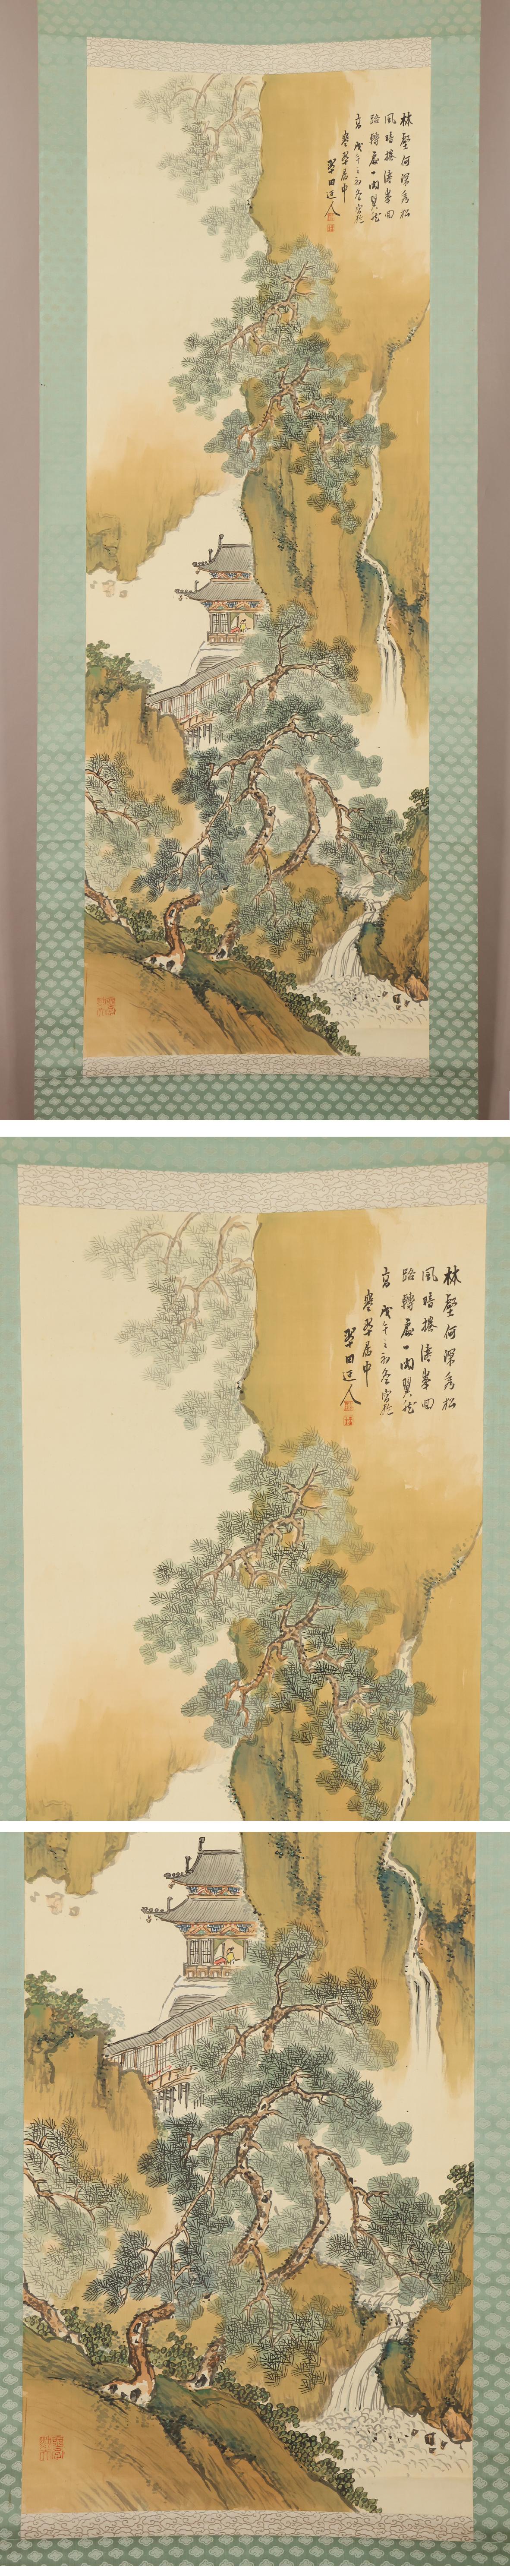 林壑何深秀松
風晴捲濤峯回
路轉處一閣翼然
高 戊午之初冬寫於
翠田道人
林壑何深秀松
風晴捲濤峯回
路轉處一閣翼然
高 戊午之初冬寫於
翠田道人